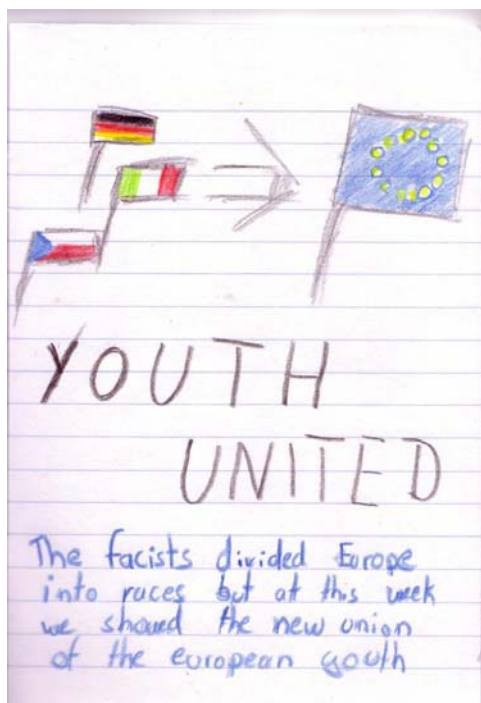 YOUTH
UNITED
The facists divided Europe
into races but at this week
we showed the new union
of the european youth